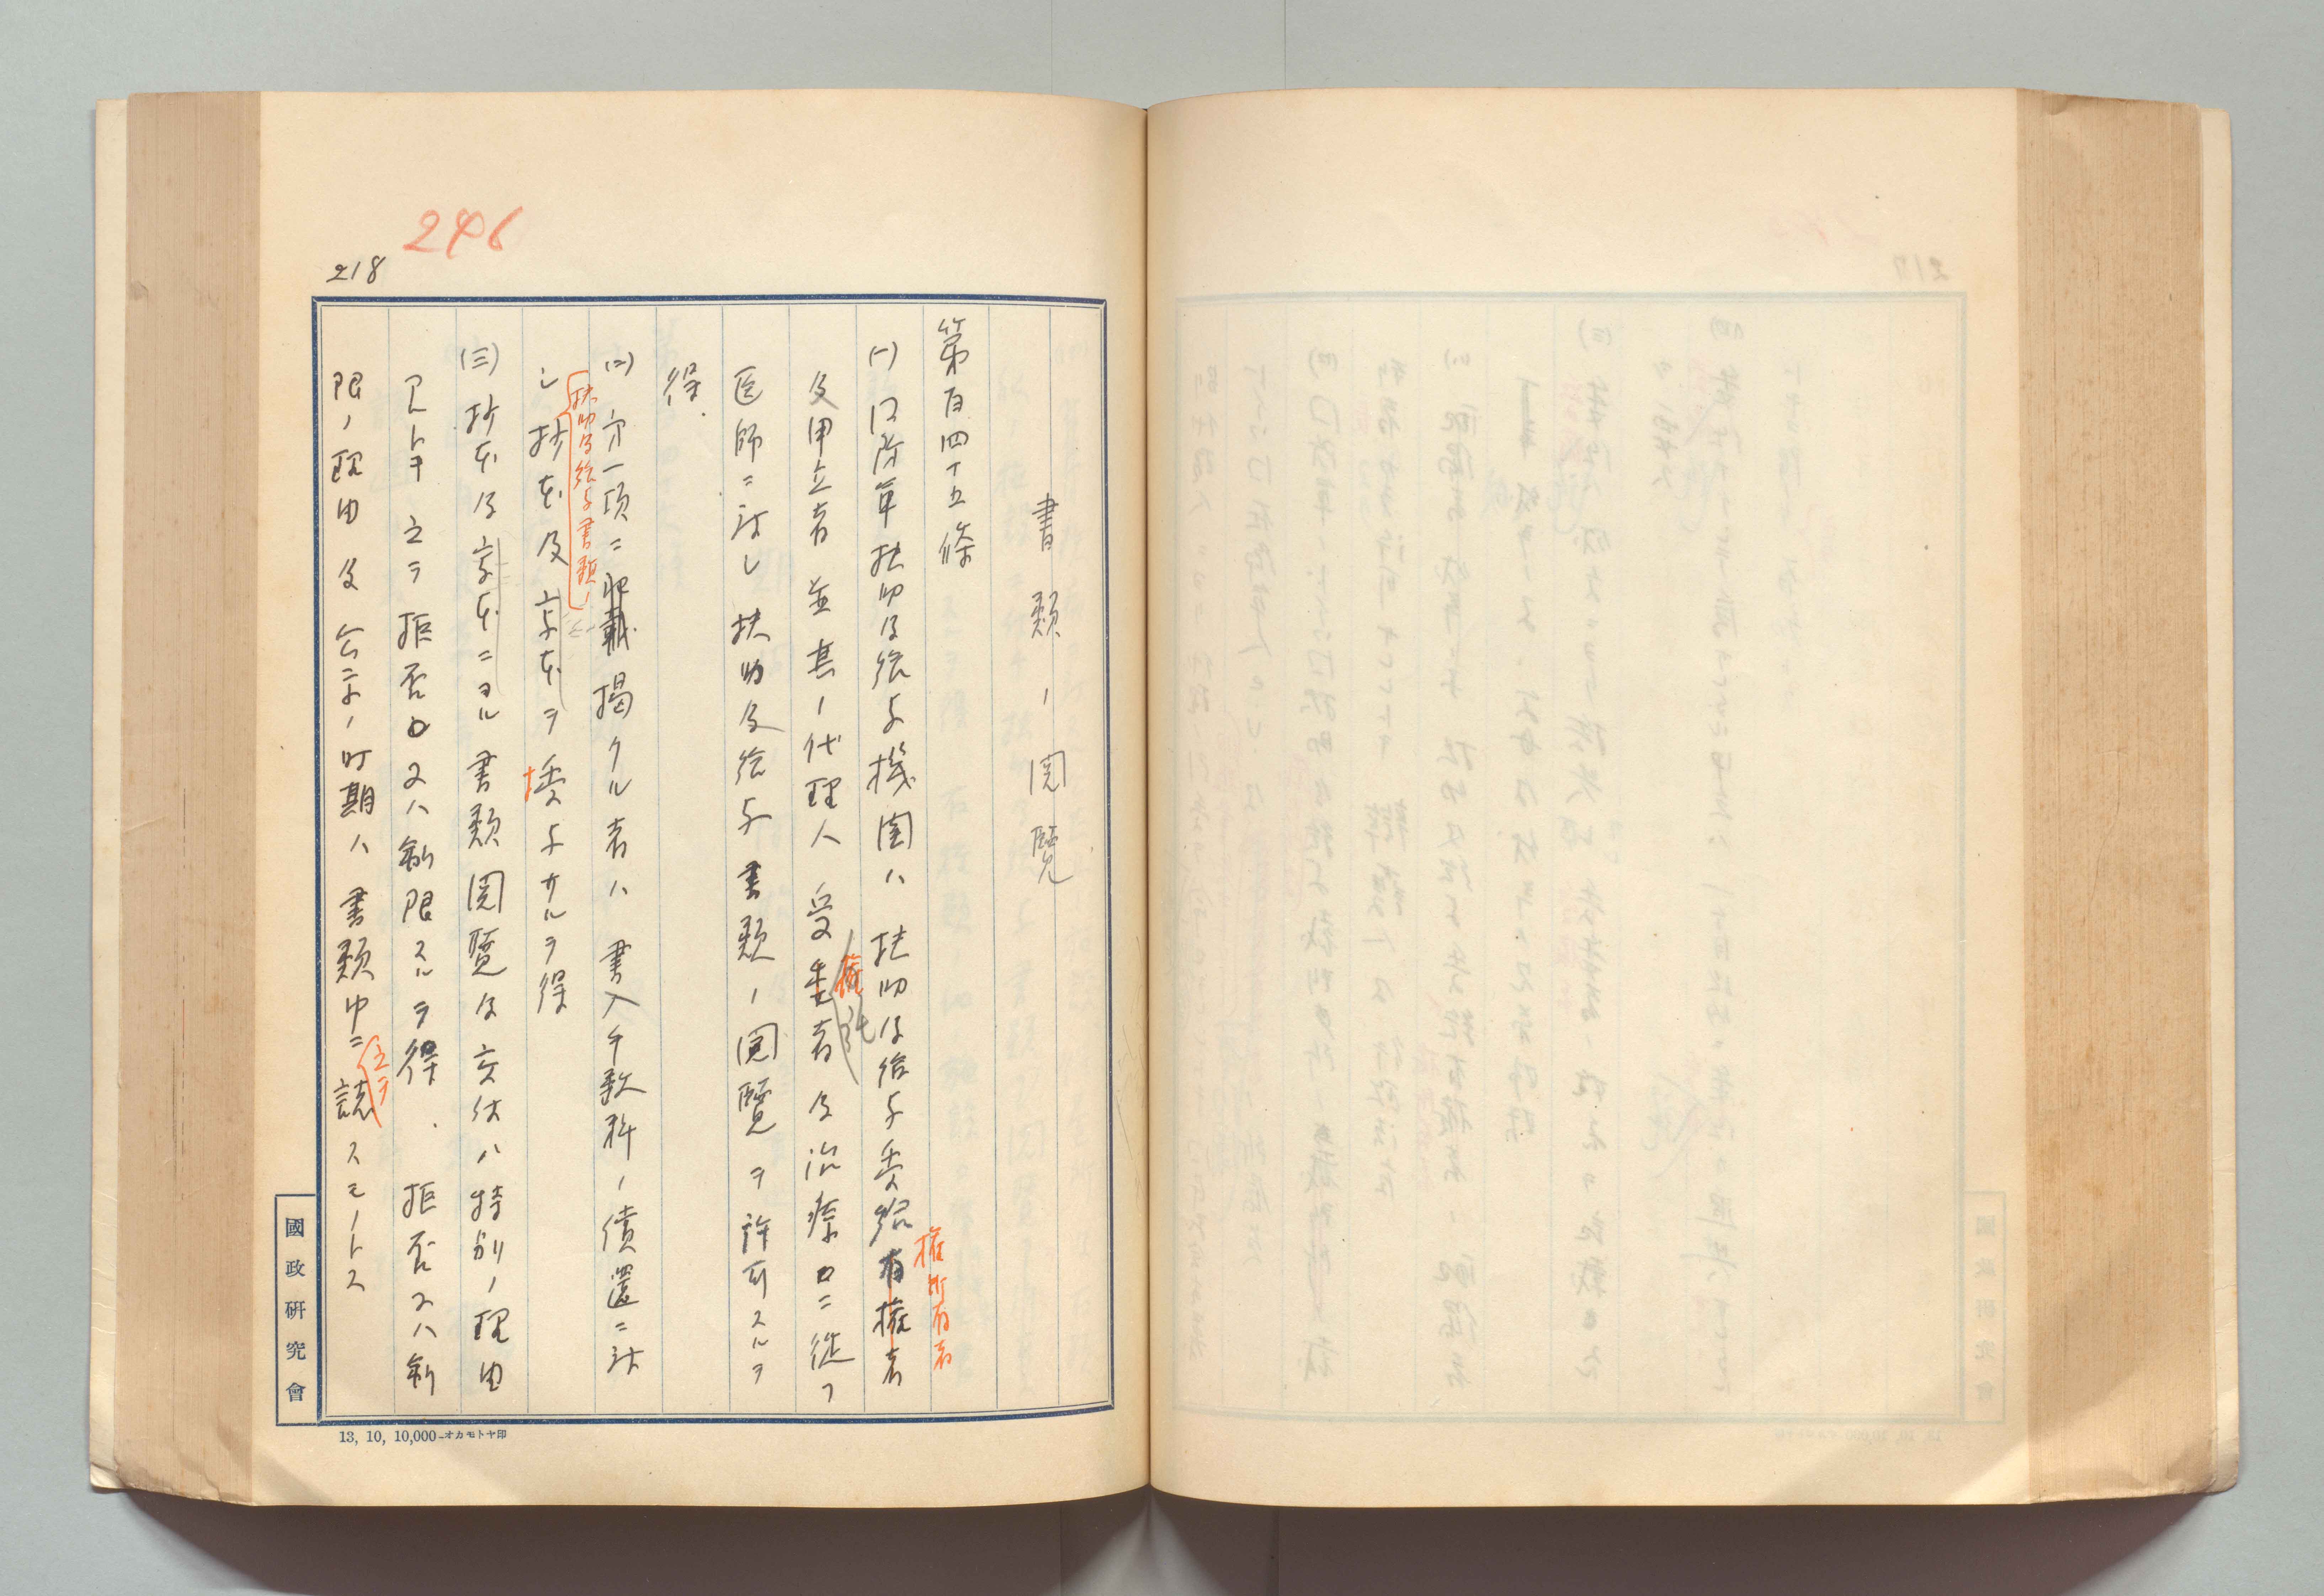 246
218
書類ノ閲覧
第百四十五條
(一) 口所官扶助及給与機関ハ扶助及給与受給有権者
権所有者
及申立者並其ノ代理人受委者及治療ニ従フ
権
医師ニ対シ扶助及給与書類ノ閲覧ヲ許可スルヲ
得.
(二) 第一項ニ掲クル者ハ書入手数料ノ償還ニ対
扶助及給与書類ノ
シ抄本及写本ヲ授与サルルヲ得
(三) 抄本及写本ニヨル書類閲覧及交付ハ特別ノ理由
アルトキ之ヲ拒否又ハ制限スルヲ得. 拒否又ハ制
限ノ理由及公示ノ時期ハ書類中ニ誌スモノトス
之ヲ
國政研究會
13, 10, 10,000-オカモトヤ印